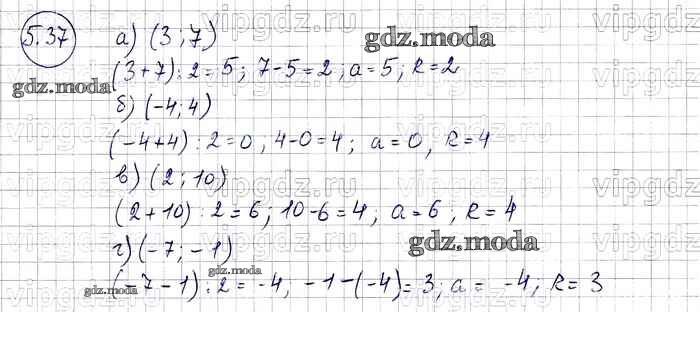 5.37 а) (3 ; 7) gdz.moda
gdz.moda (3+7) : 2 = 5; 7-5=2; a=5; R=2
б) (-4; 4)
(-4+4) : 2=0, 4-0=4; a=0, R=4
в) (2 ; 10)
(2+10) : 2=6; 10-6=4; a=6, R=4
г) (-7; -1) gdz.moda
gdz.moda
gdz.moda (-7-1) : 2 = -4, -1-(-4)=3; a= -4; R= 3
vipgdz.ru vipgdz.ru vipgdz.ru